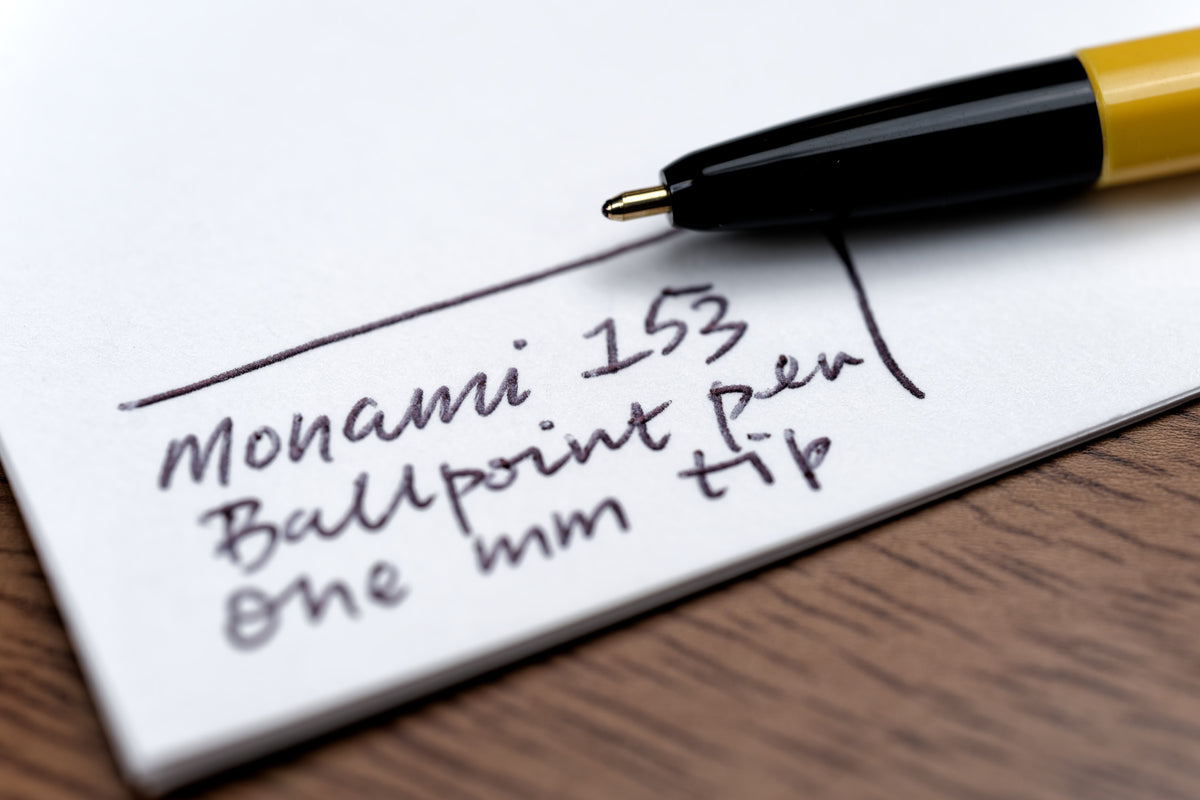 Monami 153
Ballpoint pen
One mm tip